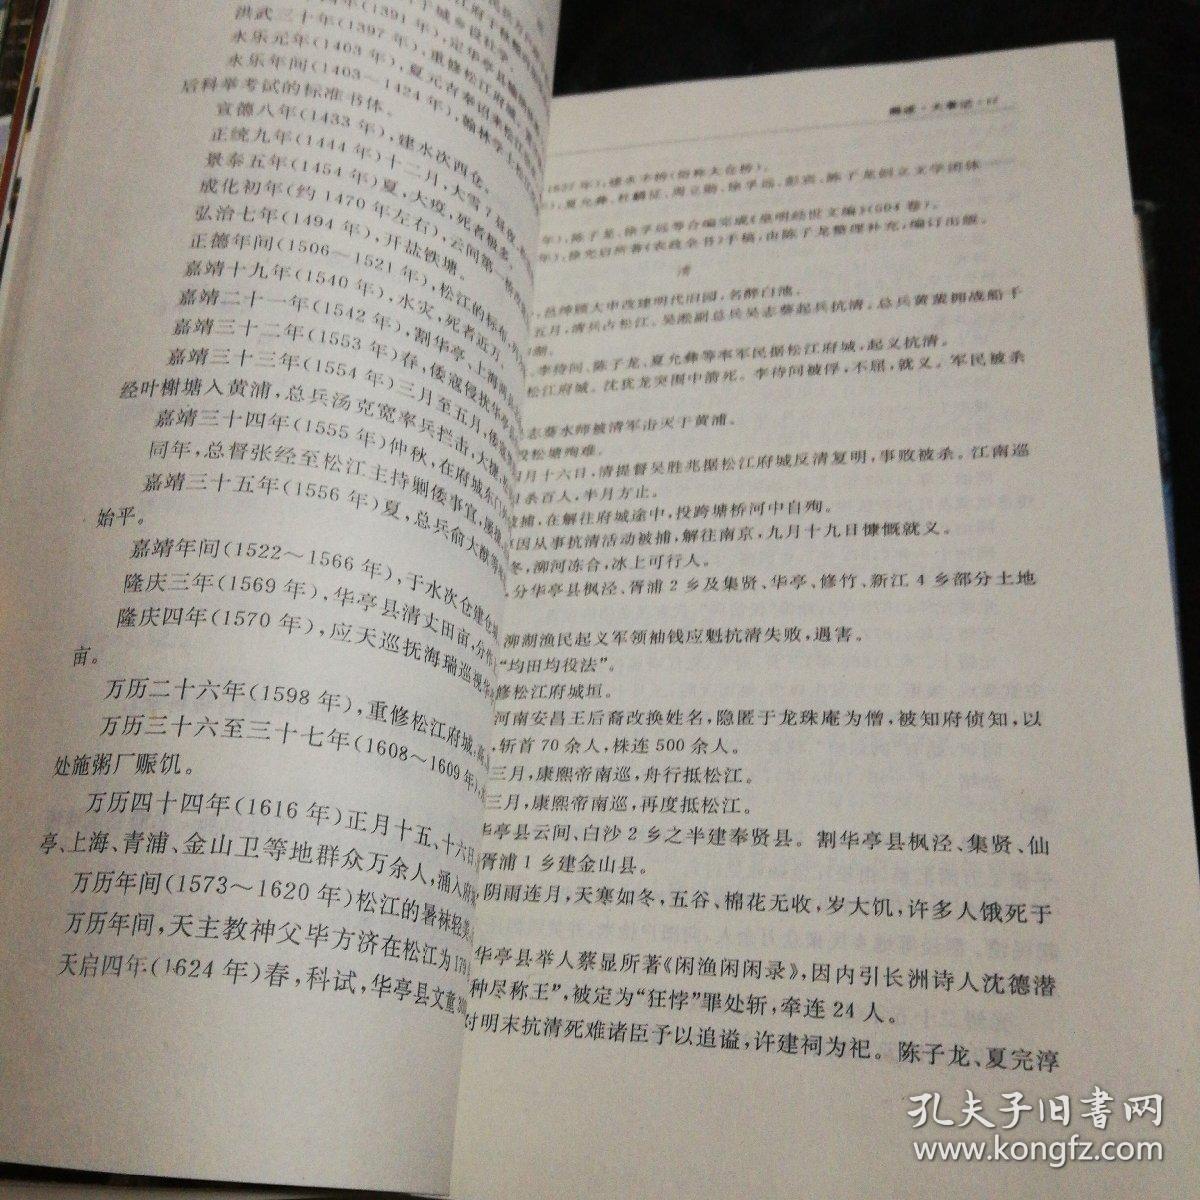 洪武三十年(1397年),重修松江府城
永乐元年(1403年),夏元吉奉诏来松江
永乐年间(1403～1424年),翰林学士
后科举考试的标准书体。
宣德八年(1433年),建水次西仓。
正统九年(1444年)十二月,大雪7昼夜
景泰五年(1454年)夏,大疫,死者极多。
成化初年(约1470年左右),云间第一
弘治七年(1494年),开盐铁塘。
正德年间(1506～1521年),松江的标布
嘉靖十九年(1540年),水灾,死者近万
嘉靖二十一年(1542年),割华亭、上海
嘉靖三十二年(1553年)春,倭寇侵扰华亭
嘉靖三十三年(1554年)三月至五月,倭寇
经叶榭塘入黄浦,总兵汤克宽率兵拦击,大捷
嘉靖三十四年(1555年)仲秋,在府城东门
同年,总督张经至松江主持剿倭事宜,屡
嘉靖三十五年(1556年)夏,总兵俞大猷等
始平。
嘉靖年间(1522～1566年),于水次仓建仓城
隆庆三年(1569年),华亭县清丈田亩,分
隆庆四年(1570年),应天巡抚海瑞巡视
亩。
万历二十六年(1598年),重修松江府城
万历三十六至三十七年(1608～1609年)
处施粥厂赈饥。
万历四十四年(1616年)正月十五、十六日
亭、上海、青浦、金山卫等地群众万余人,涌入府
万历年间(1573～1620年)松江的暑袜轻美
万历年间,天主教神父毕方济在松江为179
天启四年(1624年)春,科试,华亭县文童
概述·大事记·17
年),建永丰桥(俗称大仓桥)。
,夏允彝、杜麟征、周立勋、徐孚远、彭宾、陈子龙创立文学团体
年),陈子龙、徐孚远等合编完成《皇明经世文编》(504卷)。
年),徐光启所著《农政全书》手稿,由陈子龙整理补充,编订出版。
清
,邑绅顾大申改建明代旧园,名醉白池。
五月,清兵占松江。吴淞副总兵吴志葵起兵抗清。总兵黄蜚拥战船千
李待问、陈子龙、夏允彝等率军民据松江府城,起义抗清。
松江府城。沈犹龙突围中箭死。李待问被俘,不屈,就义。军民被杀
志葵水师被清军击灭于黄浦。
投松塘殉难。
月十六日,清提督吴胜兆据松江府城反清复明,事败被杀。江南巡
杀百人,半月方止。
捕,在解往府城途中,投跨塘桥河中自殉。
因从事抗清活动被捕,解往南京,九月十九日慷慨就义。
冬,泖河冻合,冰上可行人。
,分华亭县枫泾、胥浦2乡及集贤、华亭、修竹、新江4乡部分土地
泖湖渔民起义军领袖钱应魁抗清失败,遇害。
“均田均役法”。
修松江府城垣。
河南安昌王后裔改换姓名,隐匿于龙珠庵为僧,被知府侦知,以
,斩首70余人,株连500余人。
三月,康熙帝南巡,舟行抵松江。
三月,康熙帝南巡,再度抵松江。
华亭县云间、白沙2乡之半建奉贤县。割华亭县枫泾、集贤、仙
胥浦1乡建金山县。
阴雨连月,天寒如冬,五谷、棉花无收,岁大饥,许多人饿死于
华亭县举人蔡显所著《闲渔闲闲录》,因内引长洲诗人沈德潜
种尽称王”,被定为“狂悖”罪处斩,牵连24人。
对明末抗清死难诸臣予以追谥,许建祠为祀。陈子龙、夏完淳
孔夫子旧书网
www.kongfz.com